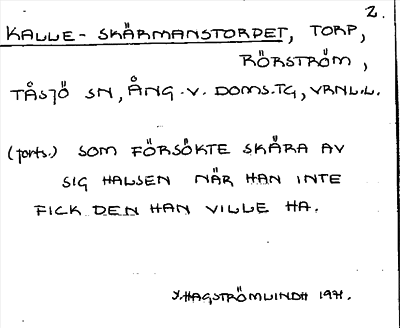 2.
KALLE-SKÄRMANSTORPET, TORP,
RÖRSTRÖM,
TÅSJÖ SN, ÅNG.V. DOMS.TG, VRNL.L.
(forts.) SOM FÖRSÖKTE SKÄRA AV
SIG HALSEN NÄR HAN INTE
FICK DEN HAN VILLE HA.
Y.HAGSTRÖMLINDH 1971.